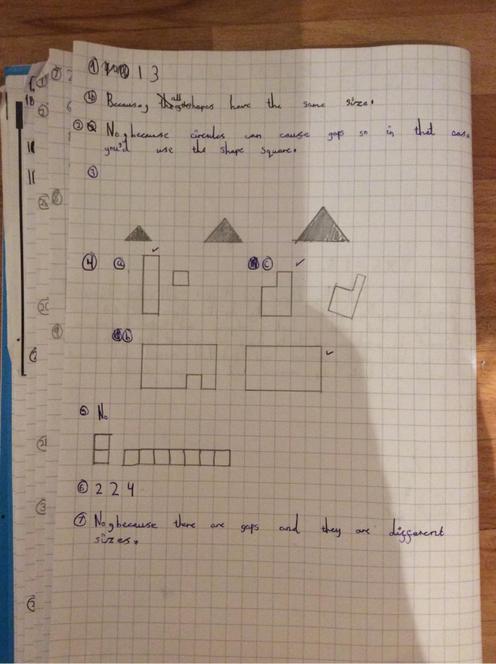 ① 1 3
ⓑ Because, all shapes have the same size.
② No, because circules can cause gaps so in that case
you'd use the shape square.
③
④ ⓐ ✓ ⓒ ✓
ⓑ ✓
⑤ No
⑥ 2 2 4
⑦ No, because there are gaps and they are different
sizes.